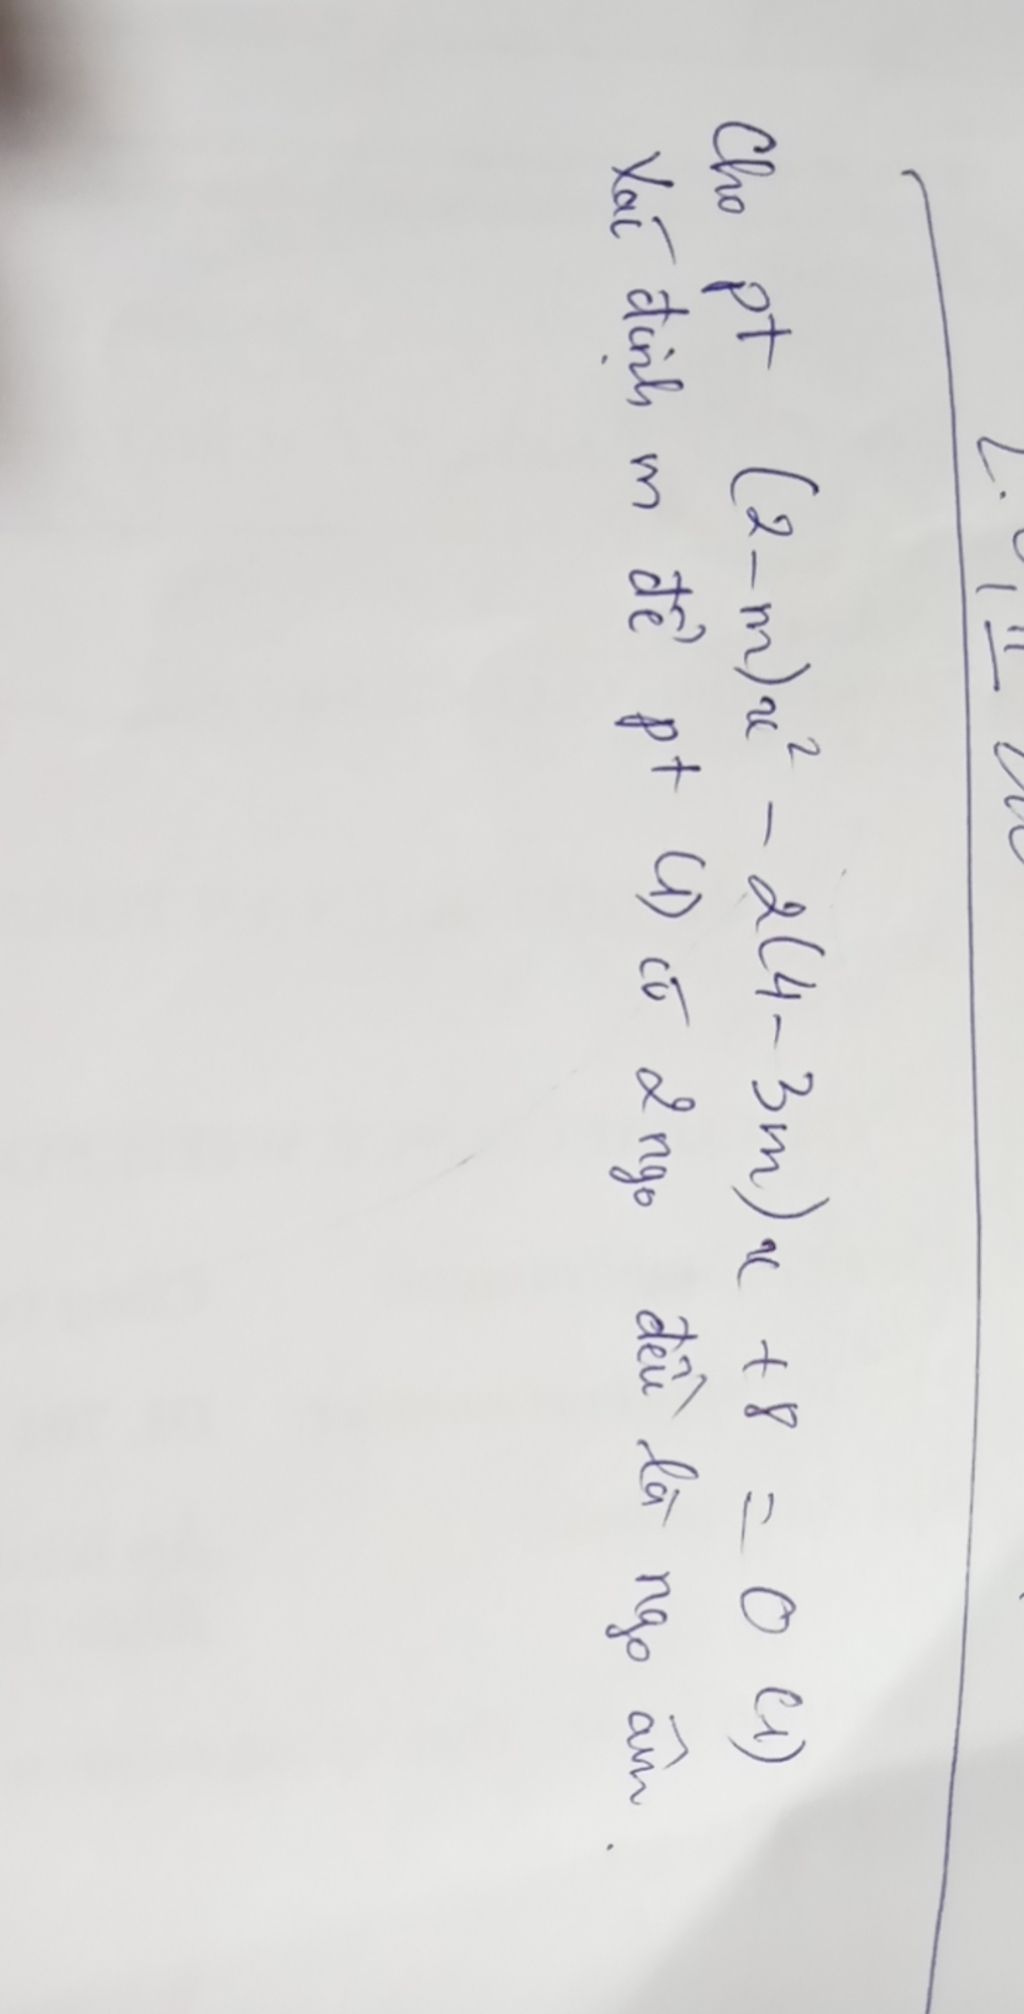 Cho pt (2-m)x² - 2(4-3m)x + 8 = 0 (1)
Xác định m để pt (1) có 2 ngo đều là ngo âm.